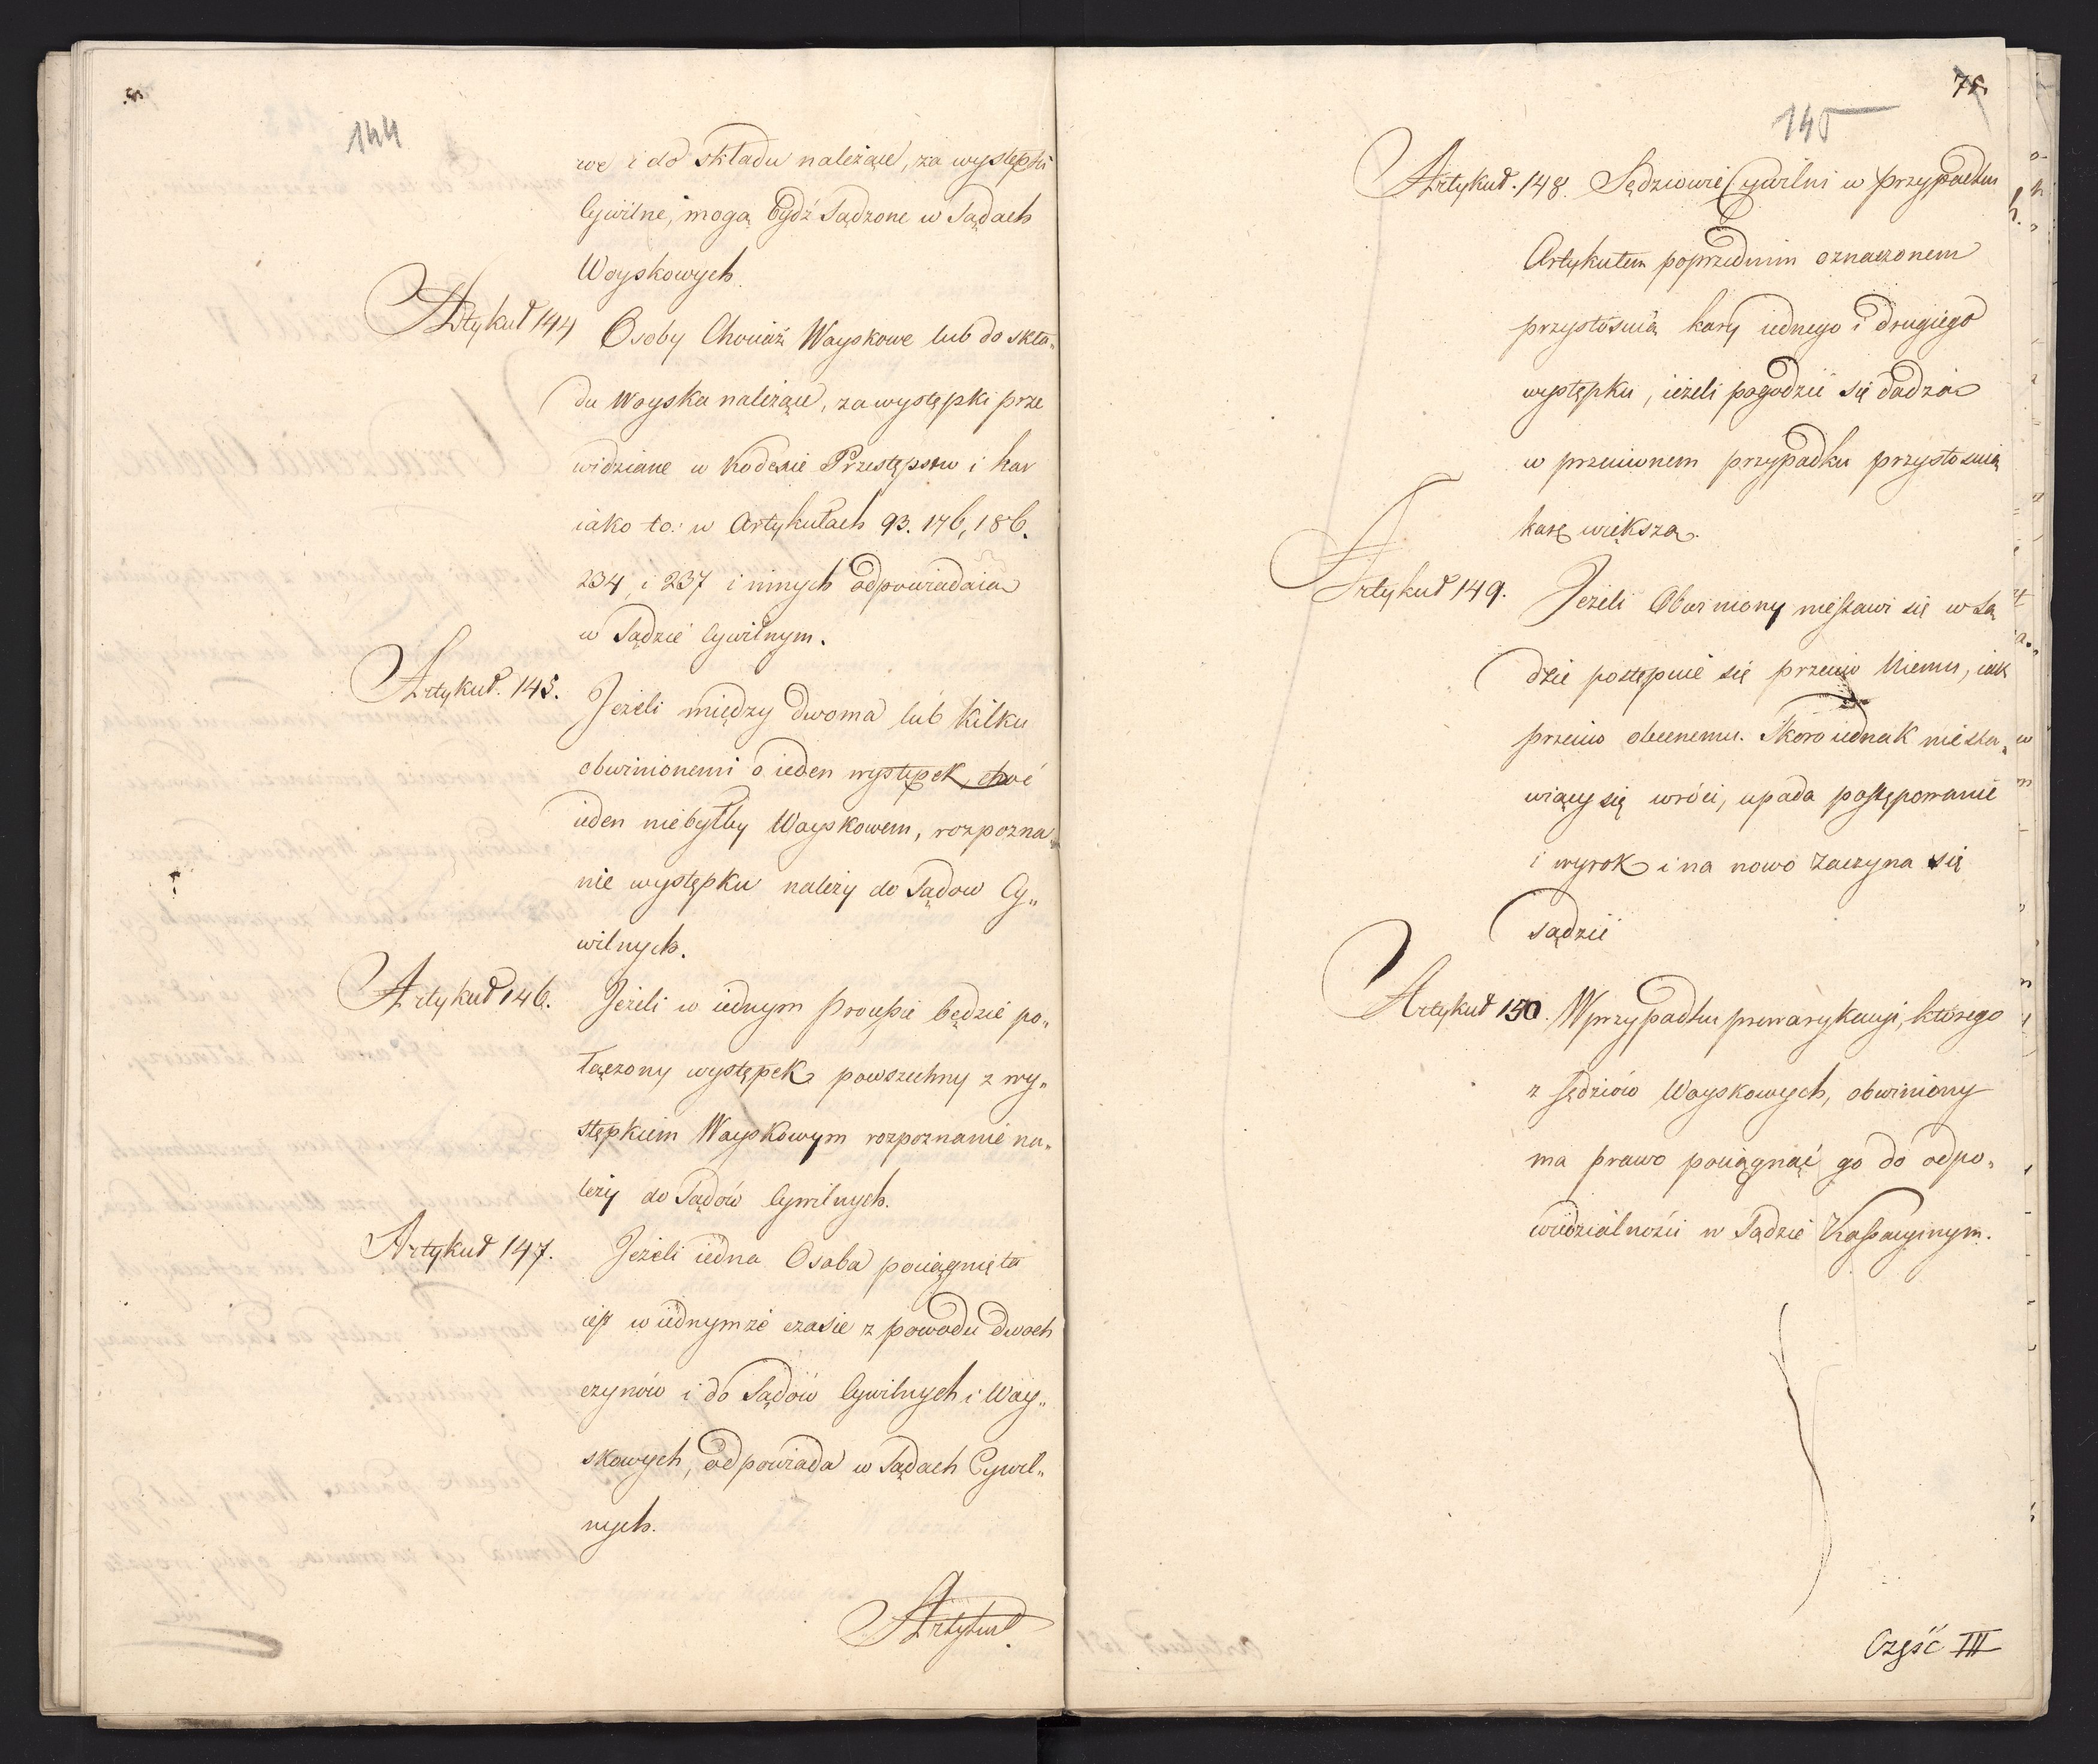 144
we i do składu należące, za występki
Cywilne, mogą bydź Sądzone w Sądach
Woyskowych.
Artykuł 144 Osoby Chociaż Woyskowe lub do skła„
du Woyska należące, za występki prze
widziane w Kodexie Przestępstw i kar
iako to: w Artykułach 93. 176, 186.
234, i 237 i innych odpowiadaią
w Sądzie Cywilnym.
Artykuł. 145. Jeżeli między dwoma lub kilku
obwinionemi o ieden występek, choć
ieden niebyłby Woyskowem, rozpozna„
nie występku należy do Sądow Cy„
wilnych.
Artykuł 146. Jeżeli w iednym Processie będzie po„
łączony występek powszechny z wy„
stępkiem Woyskowym rozpoznanie na„
leży do Sądów Cywilnych.
Artykuł 147. Jeżeli iedna Osoba pociągnięta
iest w iednymże czasie z powodu dwoch
czynów i do Sądów Cywilnych i Woy„
skowych, odpowiada w Sądach Cywil„
nych.
Artykuł
145
Artykuł. 148. Sędziowie Cywilni w przypadku
Artykułem poprzednim oznaczonem
przystósuią kary iednego i drugiego
występku, ieżeli pogodzić się dadzą
w przeciwnem przypadku przystosuią
karę większą.
Artykuł 149. Jeżeli Obwiniony niestawi się w Są
dzie postępuie się przeciw Niemu, iak
przeciw obecnemu. Skoro iednak niesta„
wiący się wróci, upada postępowanie
i wyrok i na nowo zaczyna się
sądzić
Artykuł 150. W przypadku prewarykacyi, którego
z Sędziów Woyskowych, obwiniony
ma prawo pociągnąć go do odpo„
wiedzialności w Sądzie Kassacyinym.
Część III